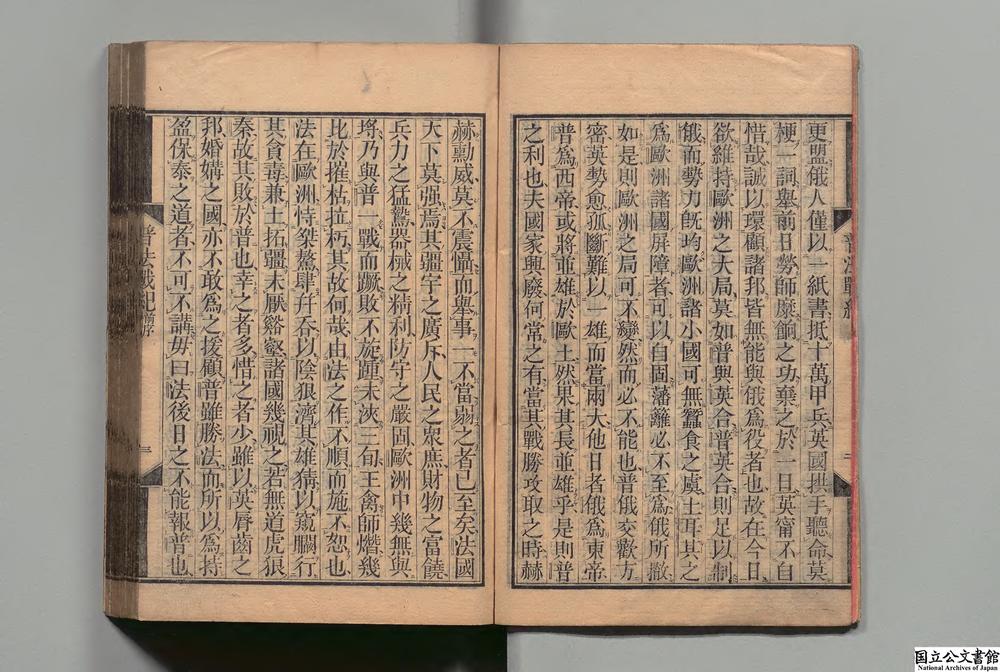 更盟俄人僅以一紙書抵十萬甲兵英國拱手聽命莫
梗一詞舉前日勞師糜餉之功棄之於一旦英甯不自
惜哉誠以環顧諸邦皆無能與俄爲役者也故在今日
欲維持歐洲之大局莫如普與英合普英合則足以制
俄而勢力旣均歐洲諸小國可無蠶食之虞土耳其之
爲歐洲諸國屏障者可以自固藩籬必不至爲俄所撤
如是則歐洲之局可不變然而必不能也普俄交歡方
密英勢愈孤斷難以一雄而當兩大他日者俄爲東帝
普爲西帝或將並雄於歐土然果其長並雄乎是則普
之利也夫國家興廢何常之有當其戰勝攻取之時赫
普法戰紀
二
赫勳威莫不震懾而舉事一不當弱之者已至矣法國
天下莫强焉其疆宇之廣斥人民之衆庶財物之富饒
兵力之猛鷙器械之精利防守之嚴固歐洲中幾無與
埒乃與普一戰而蹶敗不旋踵未浹三旬王禽師熸幾
比於摧枯拉朽其故何哉由法之作不順而施不恕也
法在歐洲恃桀驁肆幷吞以陰狼濟其雄猜以窺瞯行
其貪毒兼土拓疆未厭谿壑諸國幾視之若無道虎狼
秦故其敗於普也幸之者多惜之者少雖以英脣齒之
邦婚媾之國亦不敢爲之援顧普雖勝法而所以爲持
盈保泰之道者不可不講毋曰法後日之不能報普也
普法戰紀 前序
三
国立公文書館
National Archives of Japan